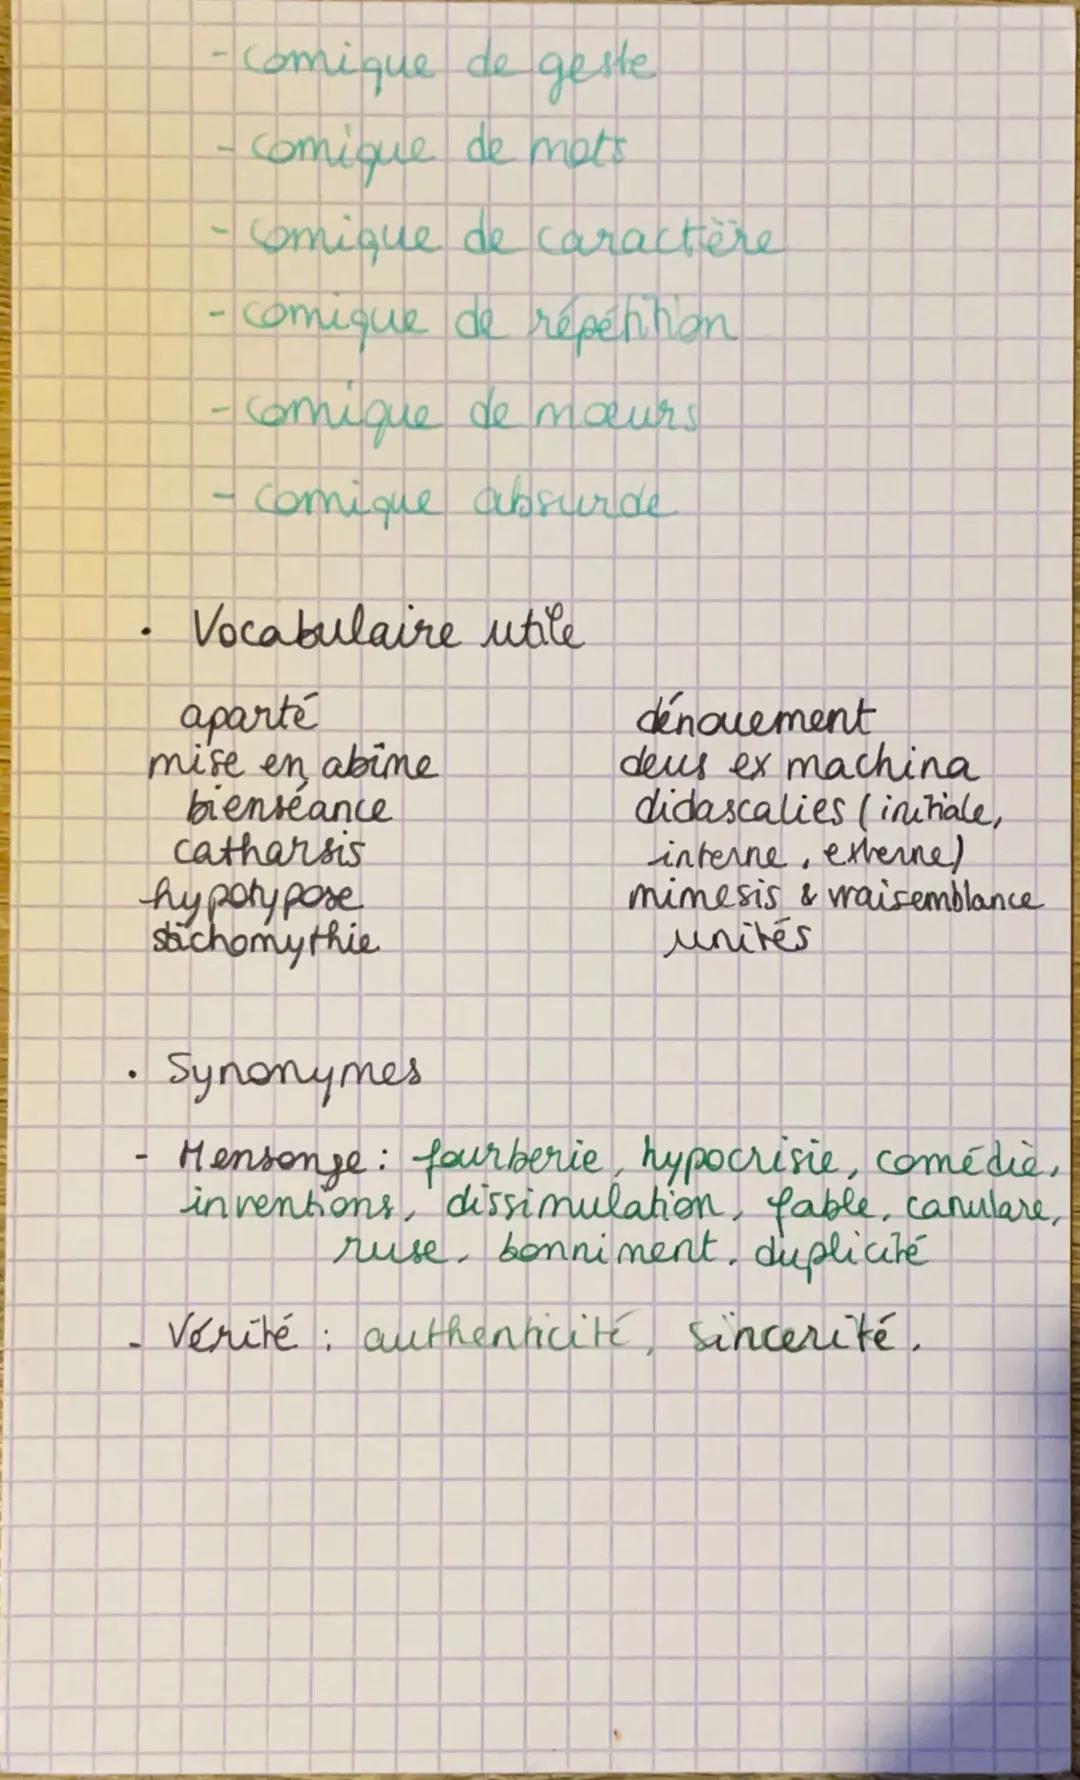 - comique de geste
- comique de mots
- comique de caractère
- comique de répétition
- comique de mœurs
- comique absurde
• Vocabulaire utile
aparté
mise en abîme
bienséance
catharsis
hypotypose
stichomythie
dénouement
deus ex machina
didascalies (initiale,
interne, externe)
mimesis & vraisemblance
unités
• Synonymes
- Mensonge : fourberie, hypocrisie, comédie,
inventions, dissimulation, fable, canulare,
ruse, bonniment, duplicité
- Vérité : authenticité, sincerité.